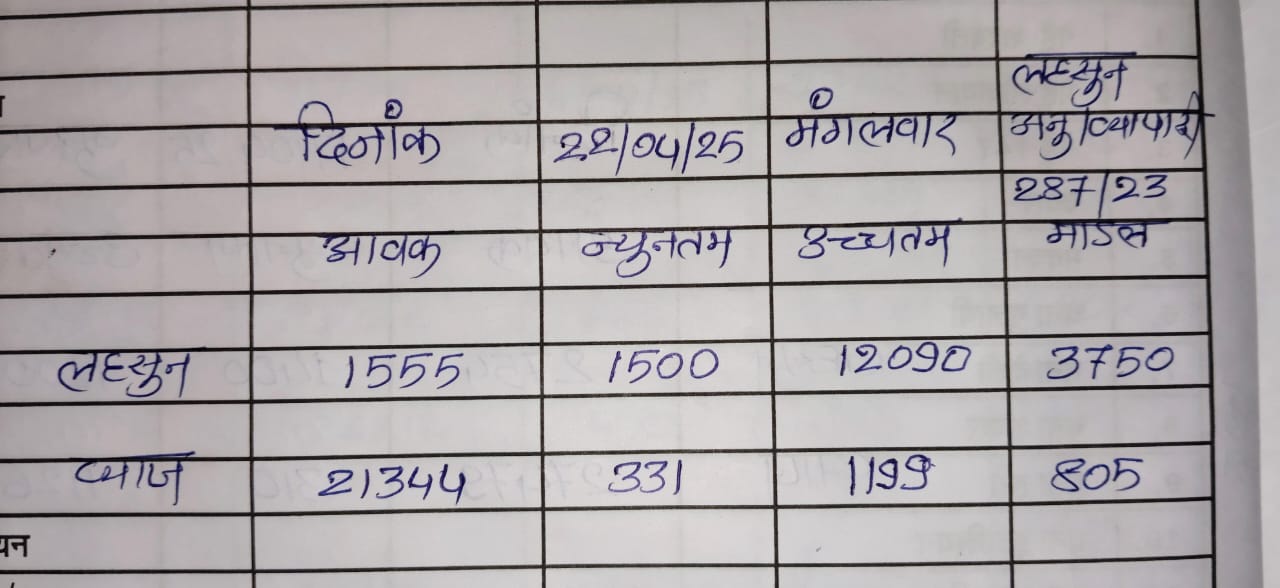 लहसुन
दिनांक 22/04/25 मंगलवार अनु/व्यापारी
287/23
आवक न्युनतम उच्चतम माडल
लहसुन 1555 1500 12090 3750
प्याज 21344 331 1199 805